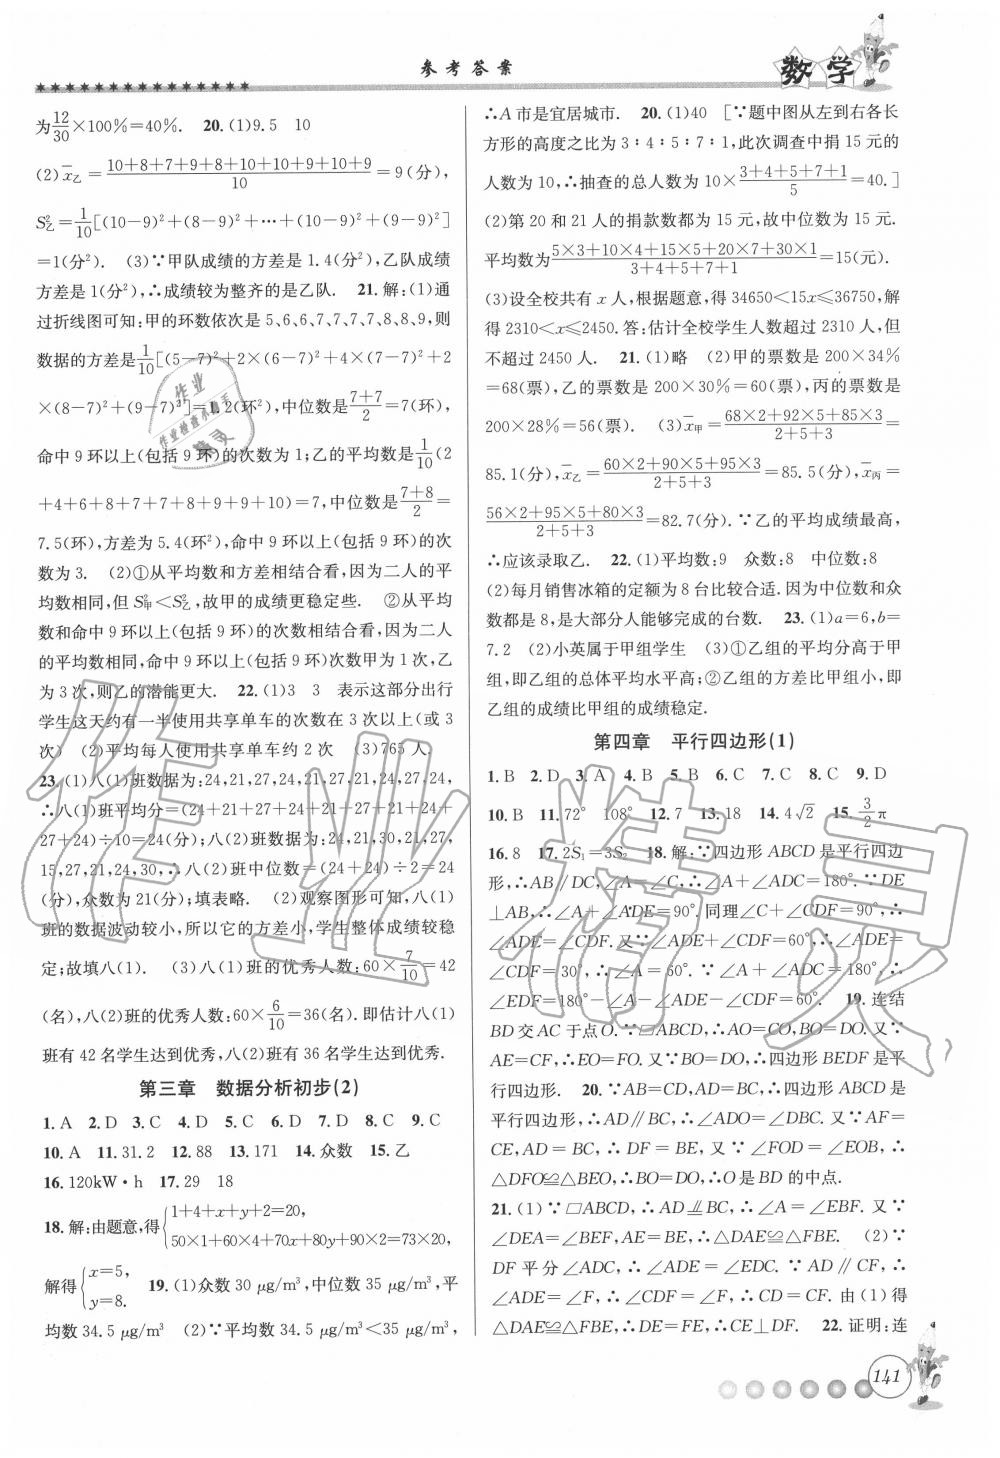 参考答案
数学
为12/30×100%=40%. 20.(1)9.5 10
(2)x̄乙=(10+8+7+9+8+10+10+9+10+9)/10=9(分),
S²乙=1/10[(10-9)²+(8-9)²+…+(10-9)²+(9-9)²]
=1(分²). (3)∵甲队成绩的方差是1.4(分²),乙队成绩
方差是1(分²),∴成绩较为整齐的是乙队. 21.解:(1)通
过折线图可知:甲的环数依次是5、6、6、7、7、7、7、8、8、9,则
数据的方差是1/10[(5-7)²+2×(6-7)²+4×(7-7)²+2
×(8-7)²+(9-7)²]=1.2(环²),中位数是(7+7)/2=7(环),
命中9环以上(包括9环)的次数为1;乙的平均数是1/10(2
+4+6+8+7+7+8+9+9+10)=7,中位数是(7+8)/2=
7.5(环),方差为5.4(环²),命中9环以上(包括9环)的次
数为3. (2)①从平均数和方差相结合看,因为二人的平
均数相同,但S²甲<S²乙,故甲的成绩更稳定些. ②从平均
数和命中9环以上(包括9环)的次数相结合看,因为二人
的平均数相同,命中9环以上(包括9环)次数甲为1次,乙
为3次,则乙的潜能更大. 22.(1)3 3 表示这部分出行
学生这天约有一半使用共享单车的次数在3次以上(或3
次) (2)平均每人使用共享单车约2次 (3)765人
23.(1)八(1)班数据为:24,21,27,24,21,27,21,24,27,24,
∴八(1)班平均分=(24+21+27+24+21+27+21+24+
27+24)÷10=24(分);八(2)班数据为:24,21,30,21,27,
15,27,21,24,30,∴八(2)班中位数=(24+24)÷2=24
(分),众数为21(分);填表略. (2)观察图形可知,八(1)
班的数据波动较小,所以它的方差小,学生整体成绩较稳
定;故填八(1). (3)八(1)班的优秀人数:60×7/10=42
(名),八(2)班的优秀人数:60×6/10=36(名).即估计八(1)
班有42名学生达到优秀,八(2)班有36名学生达到优秀.
第三章 数据分析初步(2)
1.A 2.D 3.C 4.D 5.C 6.D 7.D 8.C 9.C
10.A 11.31.2 12.88 13.171 14.众数 15.乙
16.120kW·h 17.29 18
18.解:由题意,得{1+4+x+y+2=20,
50×1+60×4+70x+80y+90×2=73×20,
解得{x=5, y=8. 19.(1)众数30 μg/m³,中位数35 μg/m³,平
均数34.5 μg/m³ (2)∵平均数34.5 μg/m³<35 μg/m³,
∴A市是宜居城市. 20.(1)40 [∵题中图从左到右各长
方形的高度之比为3∶4∶5∶7∶1,此次调查中捐15元的
人数为10,∴抽查的总人数为10×(3+4+5+7+1)/5=40.]
(2)第20和21人的捐款数都为15元,故中位数为15元.
平均数为(5×3+10×4+15×5+20×7+30×1)/(3+4+5+7+1)=15(元).
(3)设全校共有x人,根据题意,得34650<15x≤36750,解
得2310<x≤2450.答:估计全校学生人数超过2310人,但
不超过2450人. 21.(1)略 (2)甲的票数是200×34%
=68(票),乙的票数是200×30%=60(票),丙的票数是
200×28%=56(票). (3)x̄甲=(68×2+92×5+85×3)/(2+5+3)=
85.1(分),x̄乙=(60×2+90×5+95×3)/(2+5+3)=85.5(分),x̄丙=
(56×2+95×5+80×3)/(2+5+3)=82.7(分).∵乙的平均成绩最高,
∴应该录取乙. 22.(1)平均数:9 众数:8 中位数:8
(2)每月销售冰箱的定额为8台比较合适.因为中位数和众
数都是8,是大部分人能够完成的台数. 23.(1)a=6,b=
7.2 (2)小英属于甲组学生 (3)①乙组的平均分高于甲
组,即乙组的总体平均水平高;②乙组的方差比甲组小,即
乙组的成绩比甲组的成绩稳定.
第四章 平行四边形(1)
1.B 2.D 3.A 4.B 5.B 6.C 7.C 8.C 9.D
10.B 11.72° 108° 12.7 13.18 14.4√2 15.3/2π
16.8 17.2S₁=3S₂ 18.解:∵四边形ABCD是平行四边
形,∴AB∥DC,∠A=∠C,∴∠A+∠ADC=180°.∵DE
⊥AB,∴∠A+∠ADE=90°.同理∠C+∠CDF=90°,∴
∠ADE=∠CDF.又∵∠ADE+∠CDF=60°,∴∠ADE=
∠CDF=30°,∴∠A=60°.∵∠A+∠ADC=180°,∴
∠EDF=180°-∠A-∠ADE-∠CDF=60°. 19.连结
BD交AC于点O.∵▱ABCD,∴AO=CO,BO=DO.又∵
AE=CF,∴EO=FO.又∵BO=DO,∴四边形BEDF是平
行四边形. 20.∵AB=CD,AD=BC,∴四边形ABCD是
平行四边形,∴AD∥BC,∴∠ADO=∠DBC.又∵AF=
CE,AD=BC,∴DF=BE,又∵∠FOD=∠EOB,∴
△DFO≌△BEO,∴BO=DO,∴O是BD的中点.
21.(1)∵▱ABCD,∴AD⫽BC,∴∠A=∠EBF.又∵
∠DEA=∠BEF,AE=BE,∴△DAE≌△FBE. (2)∵
DF平分∠ADC,∴∠ADE=∠EDC.∵AD∥CF,∴
∠ADE=∠F,∴∠CDF=∠F,∴CD=CF.由(1)得
△DAE≌△FBE,∴DE=FE,∴CE⊥DF. 22.证明:连
141
作业精灵
作业
作业检查小精灵